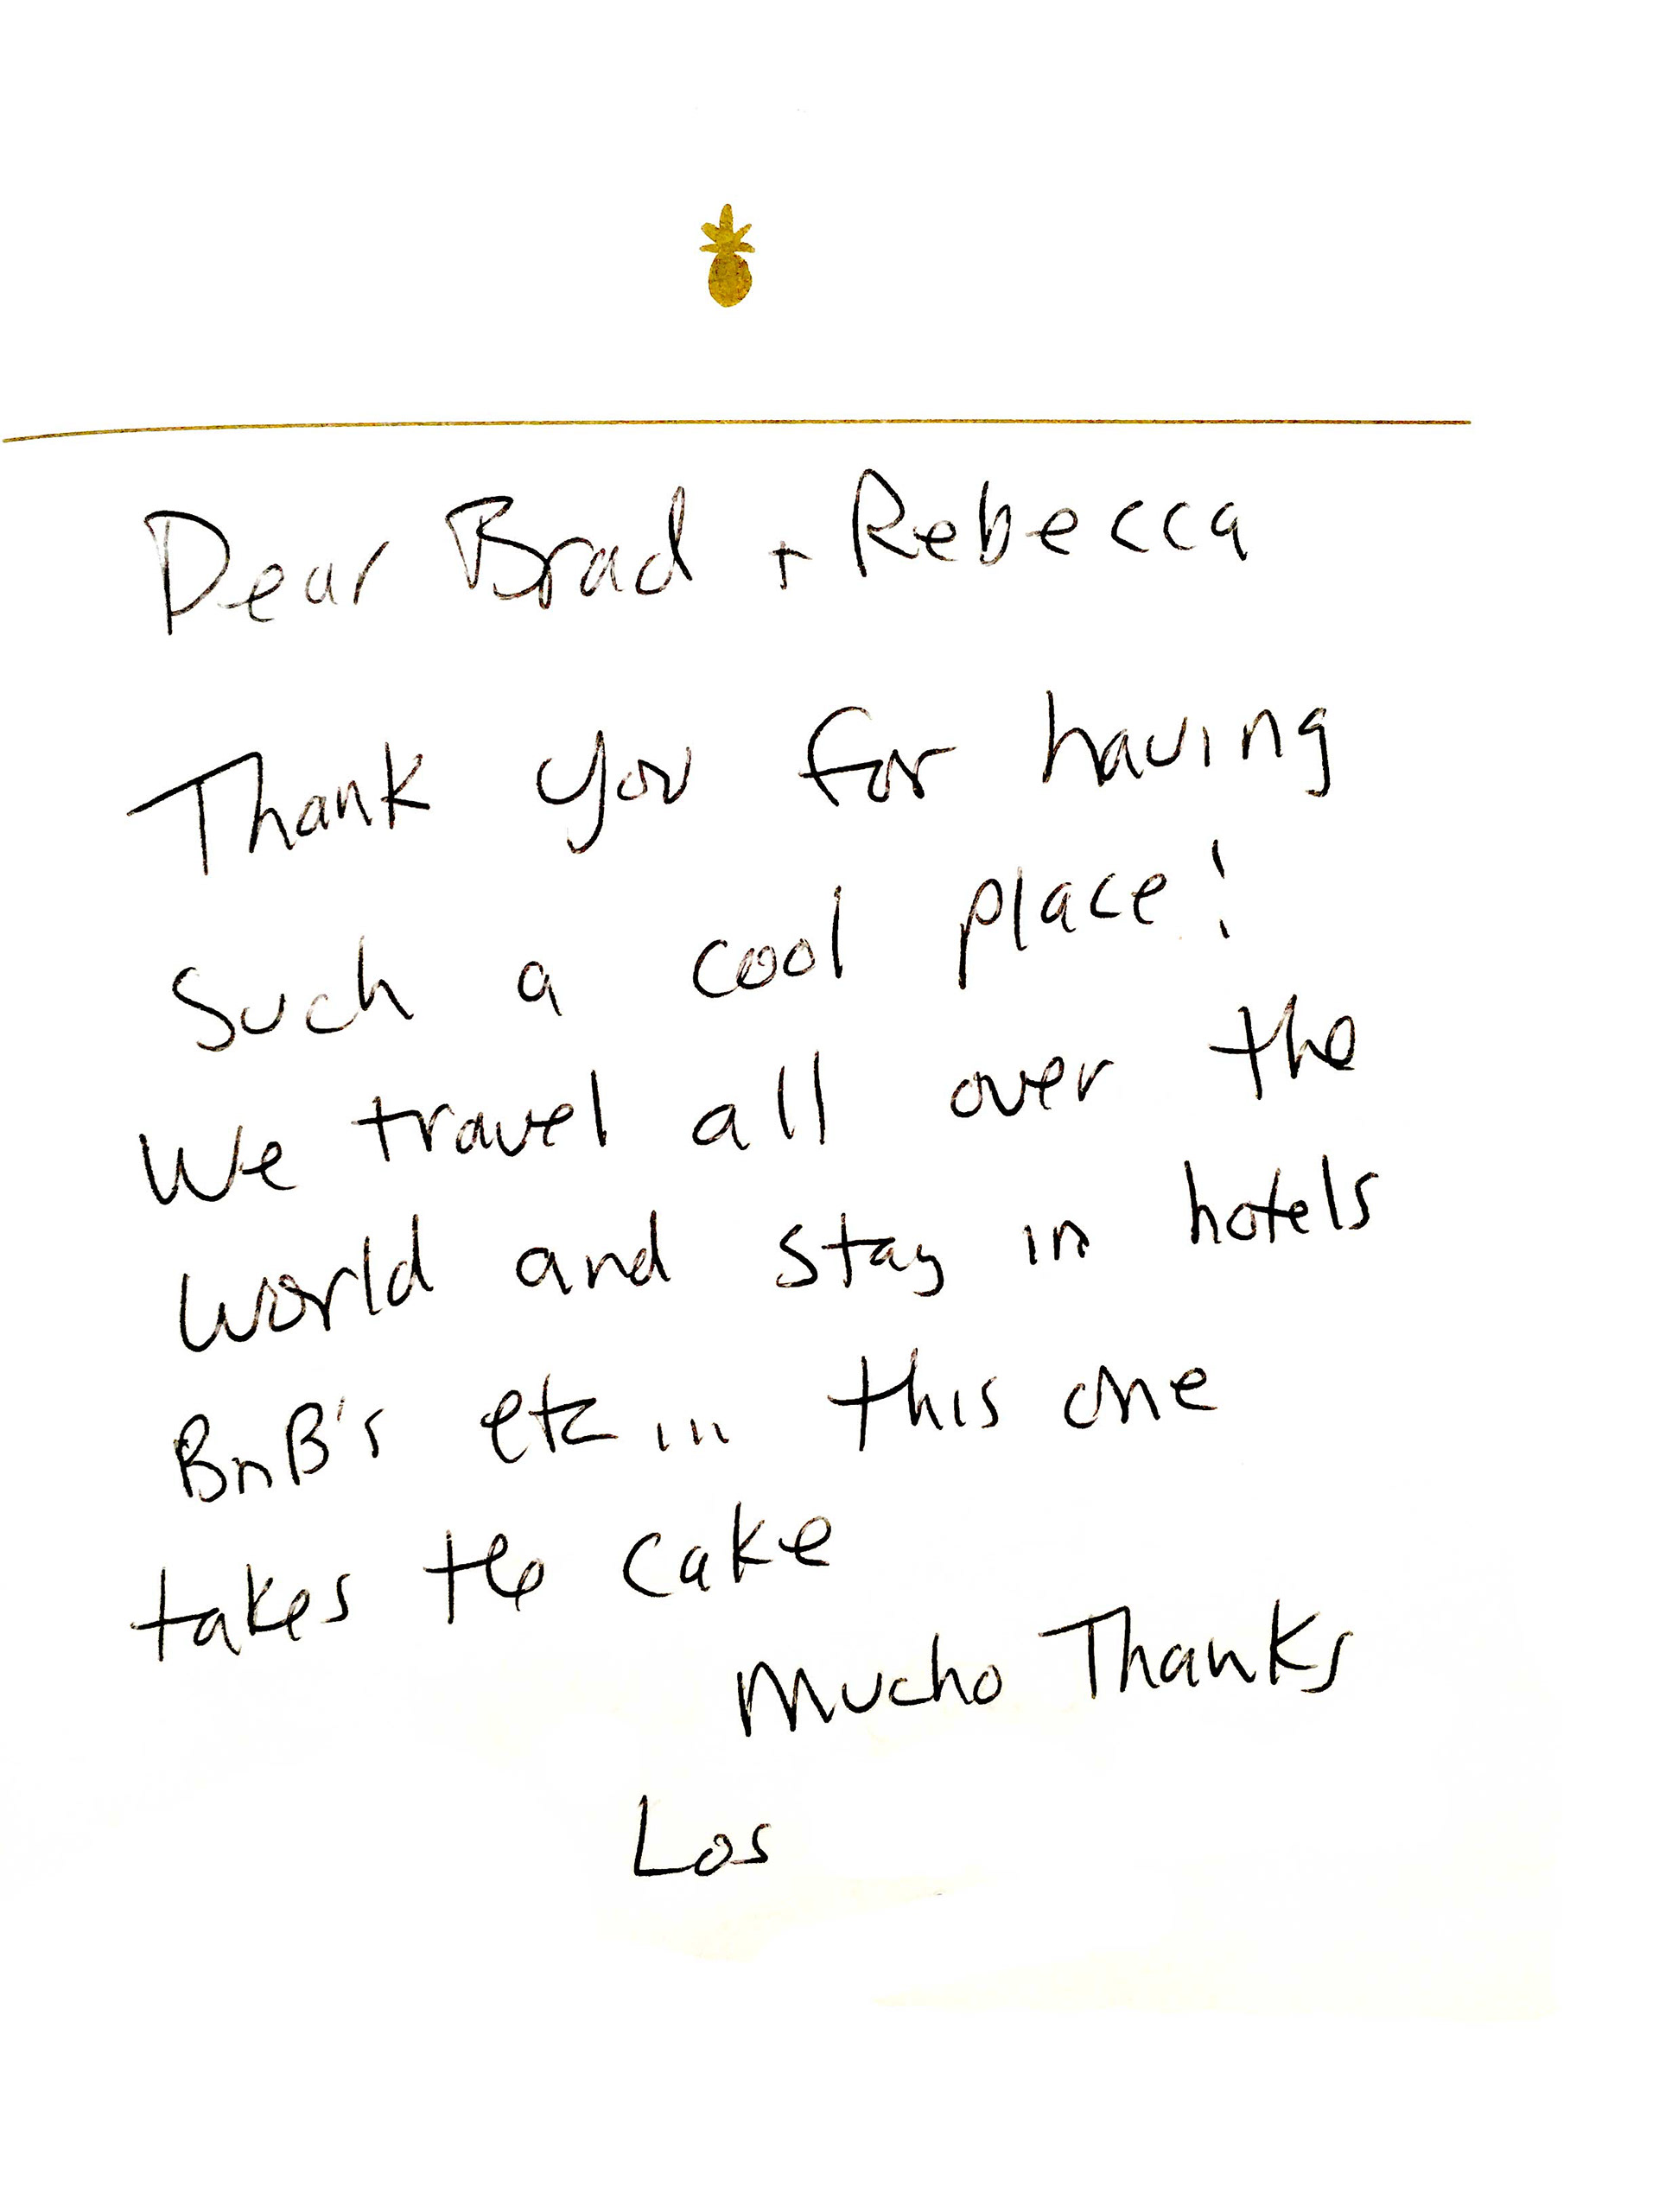 Dear Brad + Rebecca
Thank you for having
Such a cool place!
We travel all over the
world and stay in hotels
BnB's etc... this one
takes the cake
Mucho Thanks
Los